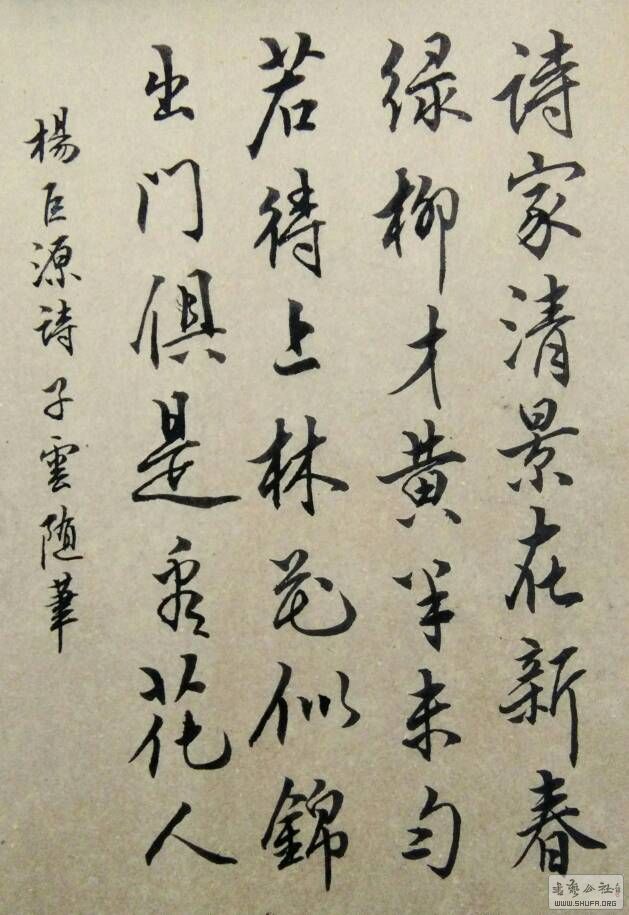 詩家清景在新春
绿柳才黄半未匀
若待上林花似錦
出門俱是看花人
楊巨源詩子雲随筆
书艺公社
WWW.SHUFA.ORG